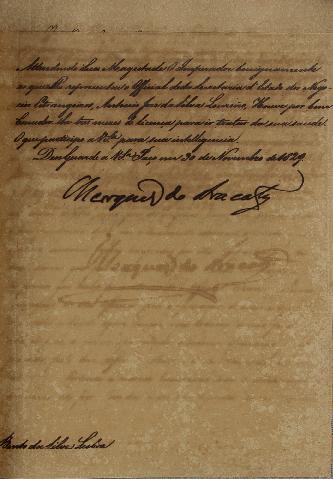 Attendendo Sua Magestade O Imperador benignamente
ao que lhe representou o Official desta Secretaria d'Estado dos Nego-
cios Estrangeiros, Antonio José da Silva Loureiro, Houve por bem
Conceder-lhe tres mezes de licença para ir tratar da sua saude.
O que participo a VSª para sua intelligencia.
Deos Guarde a VSª Paço em 30 de Novembro de 1829.
Marquez do Aracaty
Bento da Silva Lisboa